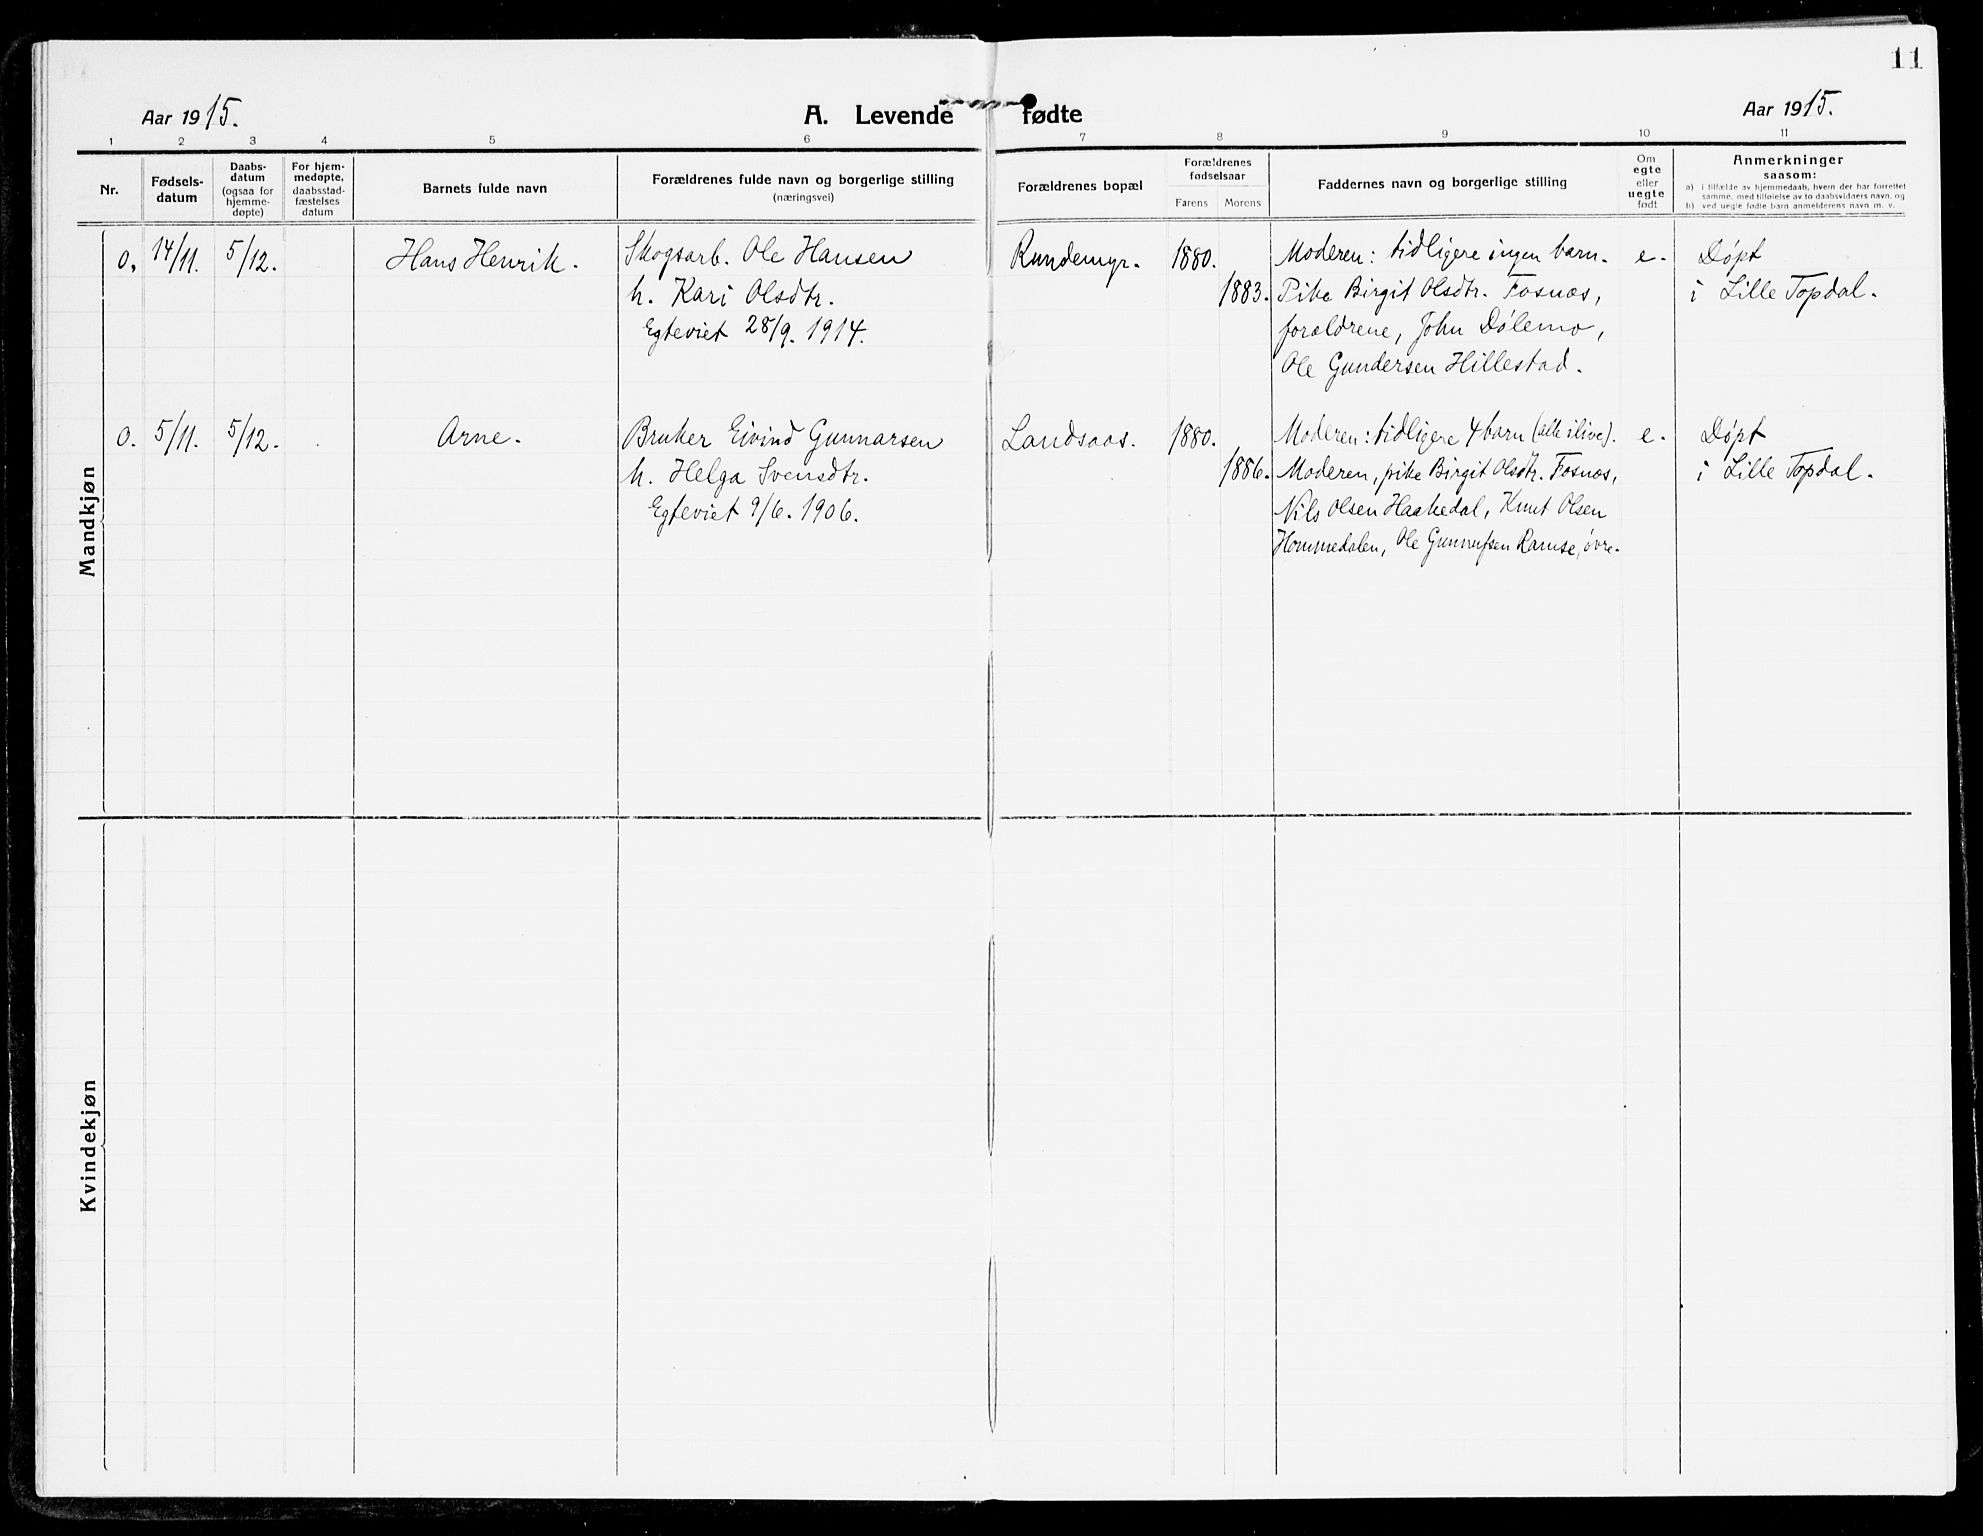 11
Aar 1915.
A. Levende fødte
Aar 1915.
1 2 3 4 5 6 7 8 9 10 11
Nr.
Fødsels-
datum
Daabs-
datum
(ogsaa for
hjemme-
døpte)
For hjem-
medøpte,
daabsstad-
fæstelses
datum
Barnets fulde navn
Forældrenes fulde navn og borgerlige stilling
(næringsvei)
Forældrenes bopæl
Forældrenes
fødselsaar
Farens Morens
Faddernes navn og borgerlige stilling
Om
egte
eller
uegte
født
Anmerkninger
saasom:
a) i tilfælde av hjemmedaab, hvem der har forrettet
samme, med tilføielse av to daabsvidners navn, og
b) ved uegte fødte barn anmelderens navn m. v.
Mandkjøn
0. 14/11. 5/12. Hans Henrik. Skogsarb. Ole Hansen Rundemyr. 1880. Moderen: tidligere ingen barn. e. Døpt
h. Kari Olsdtr. 1883. Pike Birgit Olsdtr. Fosnæs, i Lille Topdal.
Egteviet 28/9. 1914. forældrene, John Dølemo,
Ole Gundersen Hillestad.
0. 5/11. 5/12. Arne. Bruker Eivind Gunnarsen Landsaas. 1880. Moderen: tidligere 4 barn (alle ilive). e. Døpt
h. Helga Svensdtr. 1886. Moderen, pike Birgit Olsdtr. Fosnæs, i Lille Topdal.
Egteviet 9/6. 1906. Nils Olsen Haakedal, Knut Olsen
Hommedalen, Ole Gunnufsen Ramse, øvre.
Kvindekjøn